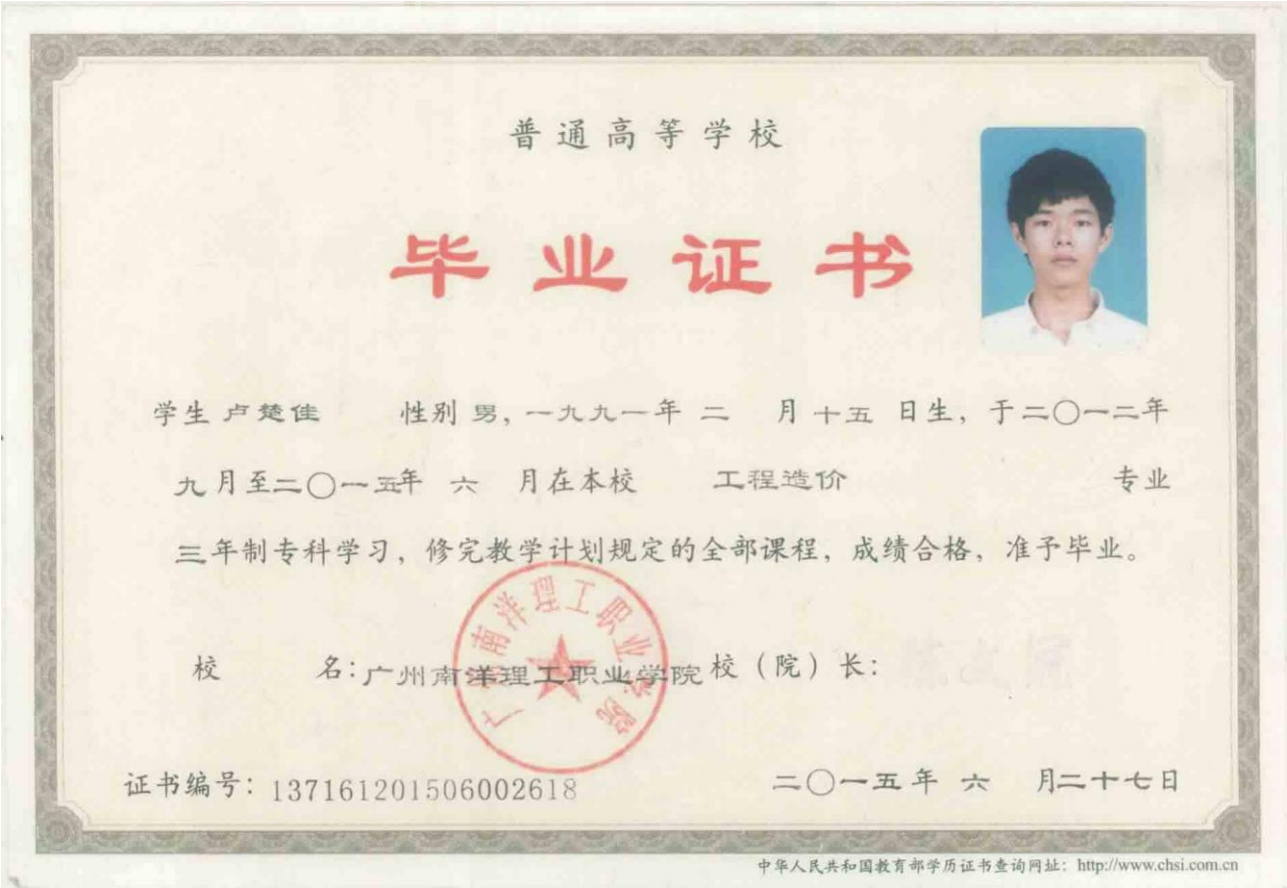 普通高等学校
毕业证书
学生 卢楚佳 性别 男, 一九九一年 二 月 十五 日生, 于二〇一二年
九月至二〇一五年 六 月在本校 工程造价 专业
三年制专科学习, 修完教学计划规定的全部课程, 成绩合格, 准予毕业。
广州南洋理工职业学院
校 名: 广州南洋理工职业学院 校(院)长:
证书编号: 137161201506002618 二〇一五年 六 月二十七日
中华人民共和国教育部学历证书查询网址: http://www.chsi.com.cn